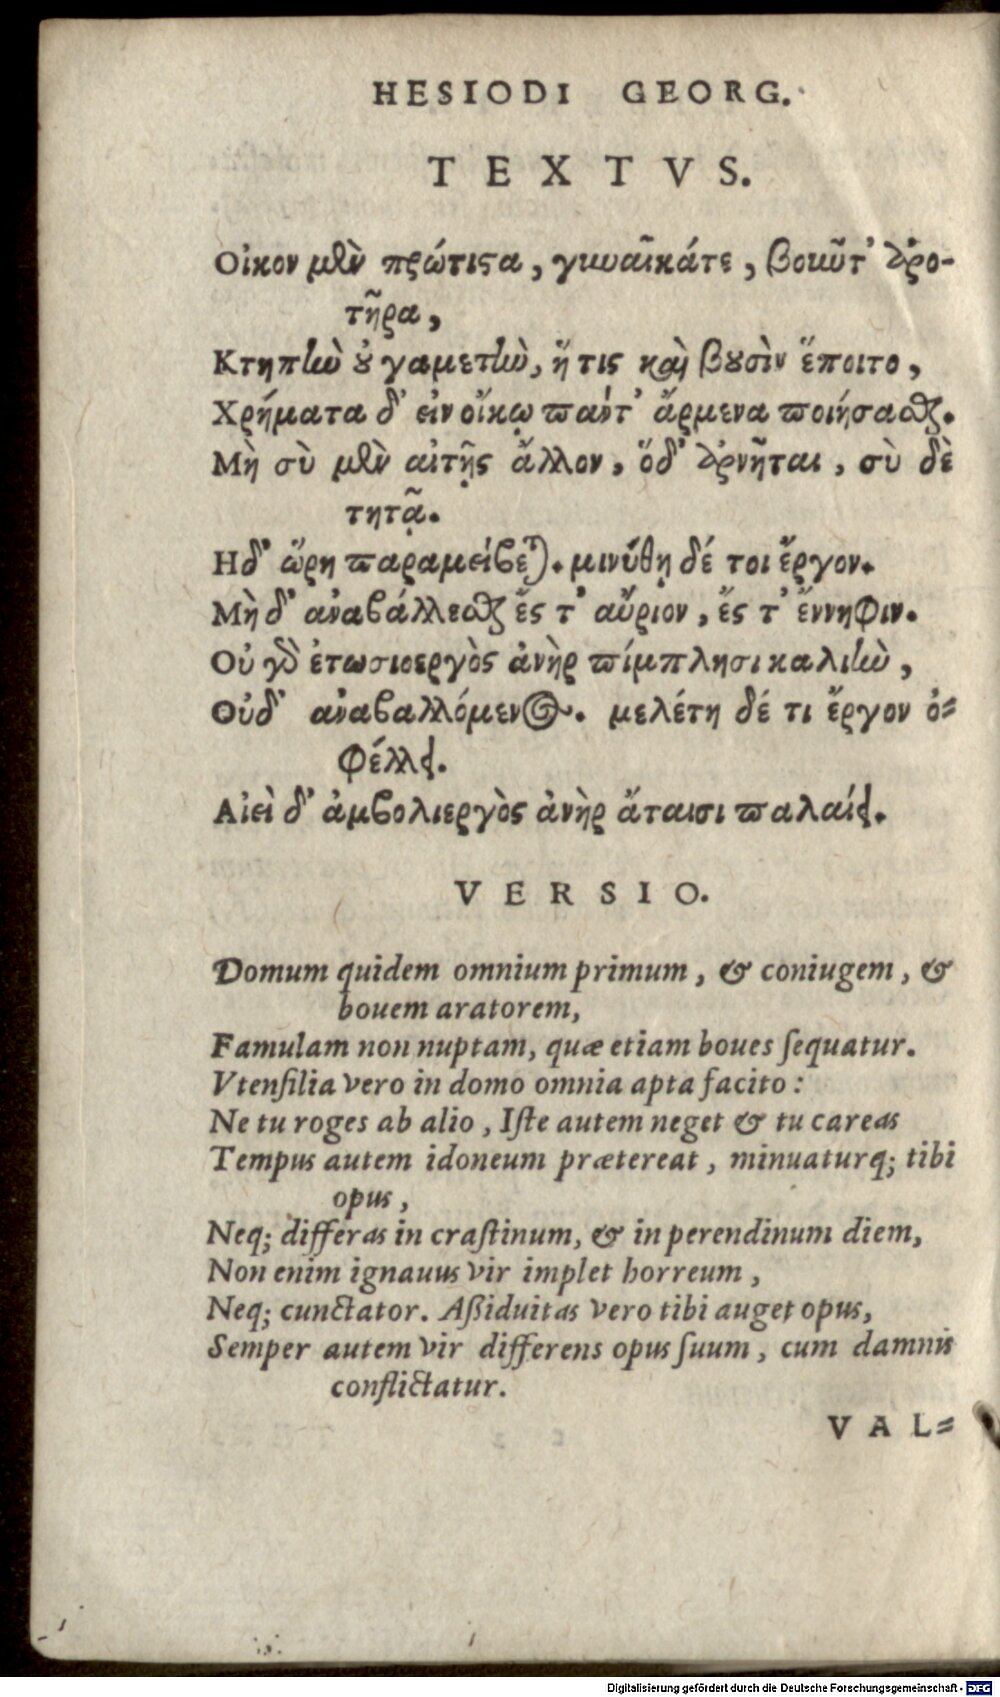 HESIODI GEORG.
TEXTVS.
Οἶκον μὲν πρώτιστα, γυναῖκάτε, βοῦν τ' ἀρο-
τῆρα,
Κτητὴν οὐ γαμετὴν, ἥ τις καὶ βουσὶν ἕποιτο,
Χρήματα δ' εἰν οἴκῳ πάντ' ἄρμενα ποιήσασθαι.
Μὴ σὺ μὲν αἰτῇς ἄλλον, ὅδ' ἀρνῆται, σὺ δὲ
τητᾷ.
Ηδ' ὥρη παραμείβεται. μινύθῃ δέ τοι ἔργον.
Μὴ δ' ἀναβάλλεσθαι ἔς τ' αὔριον, ἔς τ' ἔννηφιν.
Οὐ γὰρ ἐτωσιοεργὸς ἀνὴρ πίμπλησι καλιὴν,
Οὐδ' ἀναβαλλόμενος. μελέτη δέ τι ἔργον ὀ-
φέλλει.
Αἰεὶ δ' ἀμβολιεργὸς ἀνὴρ ἄταισι παλαίει.
VERSIO.
Domum quidem omnium primum, & coniugem, &
bouem aratorem,
Famulam non nuptam, quæ etiam boues ſequatur.
Vtenſilia vero in domo omnia apta facito:
Ne tu roges ab alio, Iſte autem neget & tu careas
Tempus autem idoneum prætereat, minuaturq; tibi
opus,
Neq; differas in craſtinum, & in perendinum diem,
Non enim ignauus vir implet horreum,
Neq; cunctator. Aßiduitas vero tibi auget opus,
Semper autem vir differens opus ſuum, cum damnis
conflictatur.
VAL=
Digitalisierung gefördert durch die Deutsche Forschungsgemeinschaft - DFG